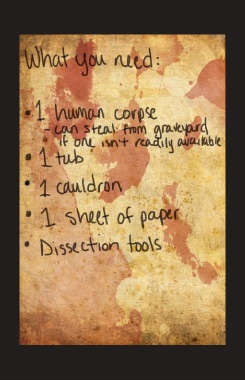 What you need:
• 1 human corpse
- can steal from graveyard
if one isn't readily available
• 1 tub
• 1 cauldron
• 1 sheet of paper
• Dissection tools